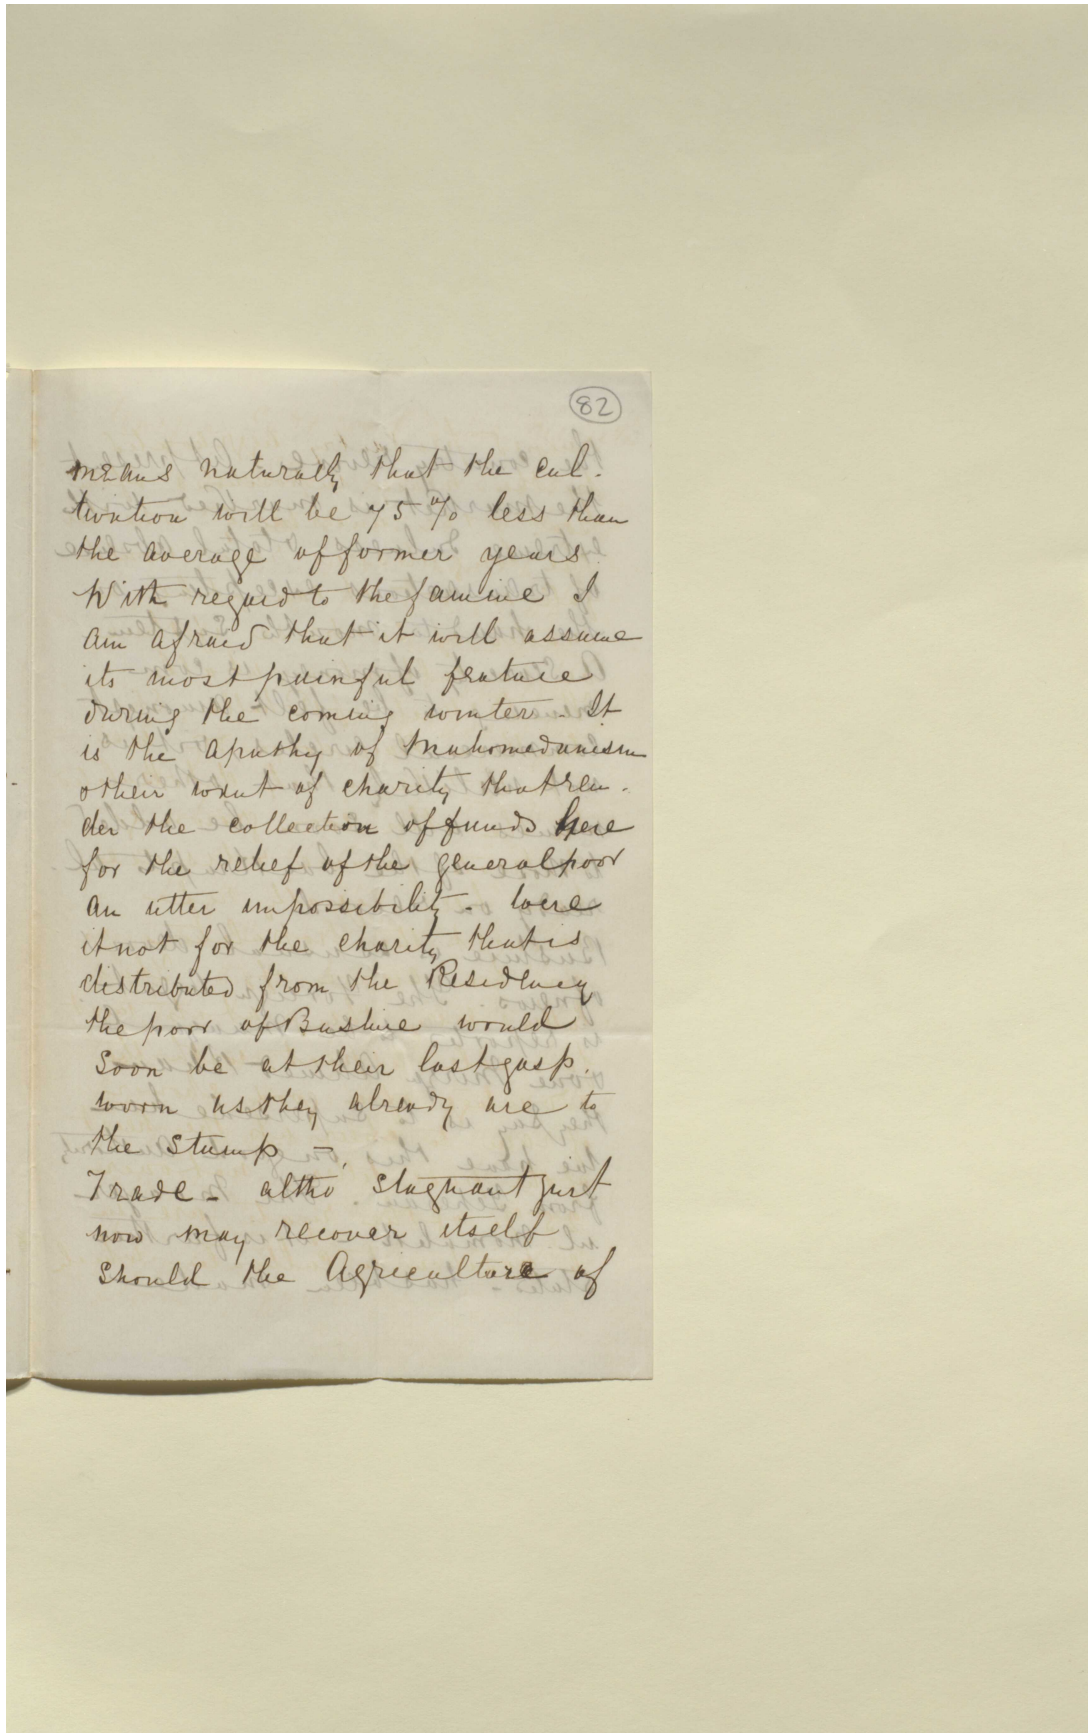 82
means naturally that the cul-
tivation will be 75 % less than
the average of former years.
With regard to the famine I
am afraid that it will assume
its most painful feature
during the coming winter - It
is the apathy of Mahomedanism
& their want of charity that ren-
der the collection of funds here
for the relief of the general poor
an utter impossibility - were
it not for the charity that is
distributed from the Residency
the poor of Bushire would
soon be at their last gasp.
worn as they already are to
the stump -
Trade - altho' stagnant just
now may recover itself
should the Agriculture of